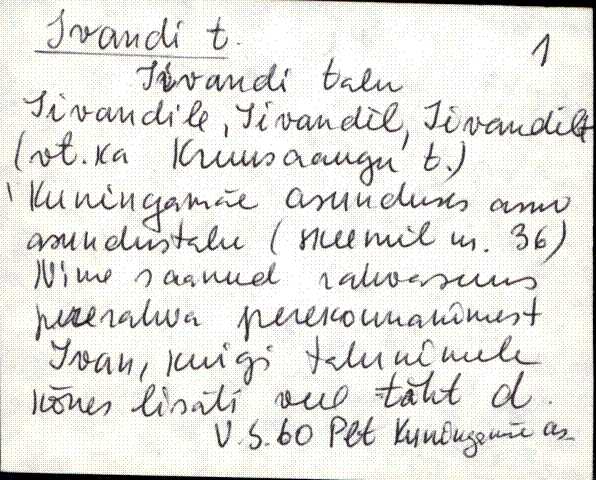 Ivandi t.
1
Iivandi talu
Iivandile, Iivandil, Iivandilt
(vt. ka Kruusaaugu t.)
Kuningamäe asunduses asuv
asundustalu (skeemil nr. 36)
Nime saanud rahvasuus
pererahva perekonnanimest
Ivan, kuigi talunimele
kõnes lisati veel täht d.
V.S. 60 Plt Kuningamäe as.